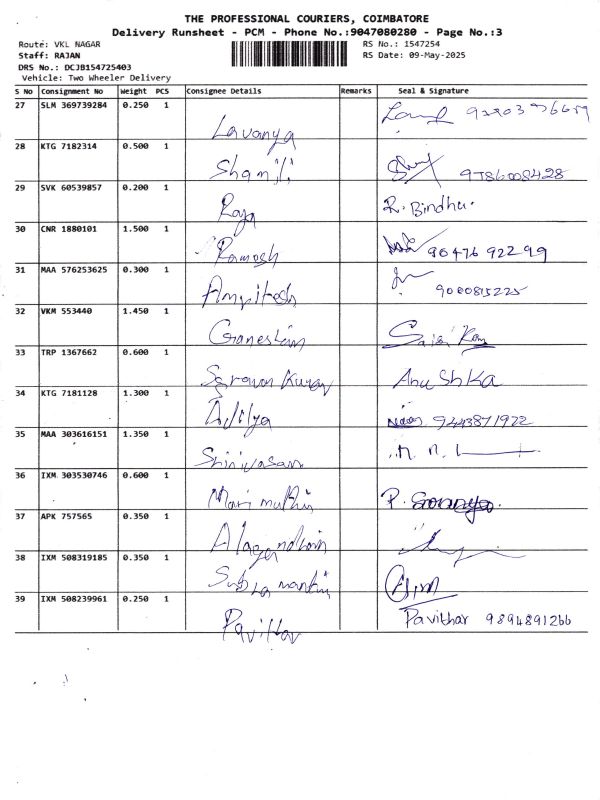 THE PROFESSIONAL COURIERS, COIMBATORE
Delivery Runsheet - PCM - Phone No.:9047080280 - Page No.:3
Route: VKL NAGAR RS No.: 1547254
Staff: RAJAN RS Date: 09-May-2025
DRS No.: DCJB154725403
Vehicle: Two Wheeler Delivery
S No Consignment No Weight PCS Consignee Details Remarks Seal & Signature
27 SLM 369739284 0.250 1
Lavanya
28 KTG 7182314 0.500 1
Shamili 9786008428
29 SVK 60539857 0.200 1
Raja R. Bindhu.
30 CNR 1880101 1.500 1
Ramesh 90476 92299
31 MAA 576253625 0.300 1
9000815225
32 VKM 553440 1.450 1
Ganeshan
33 TRP 1367662 0.600 1
Saravan Kumar Anushka
34 KTG 7181128 1.300 1
Aditya 9443871922
35 MAA 303616151 1.350 1
Srinivasan
36 IXM 303530746 0.600 1
Mari muthu P.
37 APK 757565 0.350 1
38 IXM 508319185 0.350 1
39 IXM 508239961 0.250 1
Pavithar Pavithar 9894891266